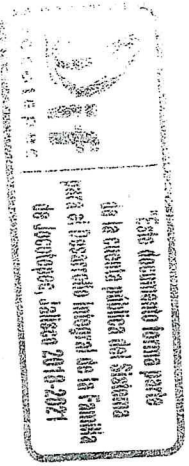 Jocotepec
"Este documento forma parte
de la cuenta pública del Sistema
para el Desarrollo Integral de la Familia
de Jocotepec, Jalisco 2018-2021